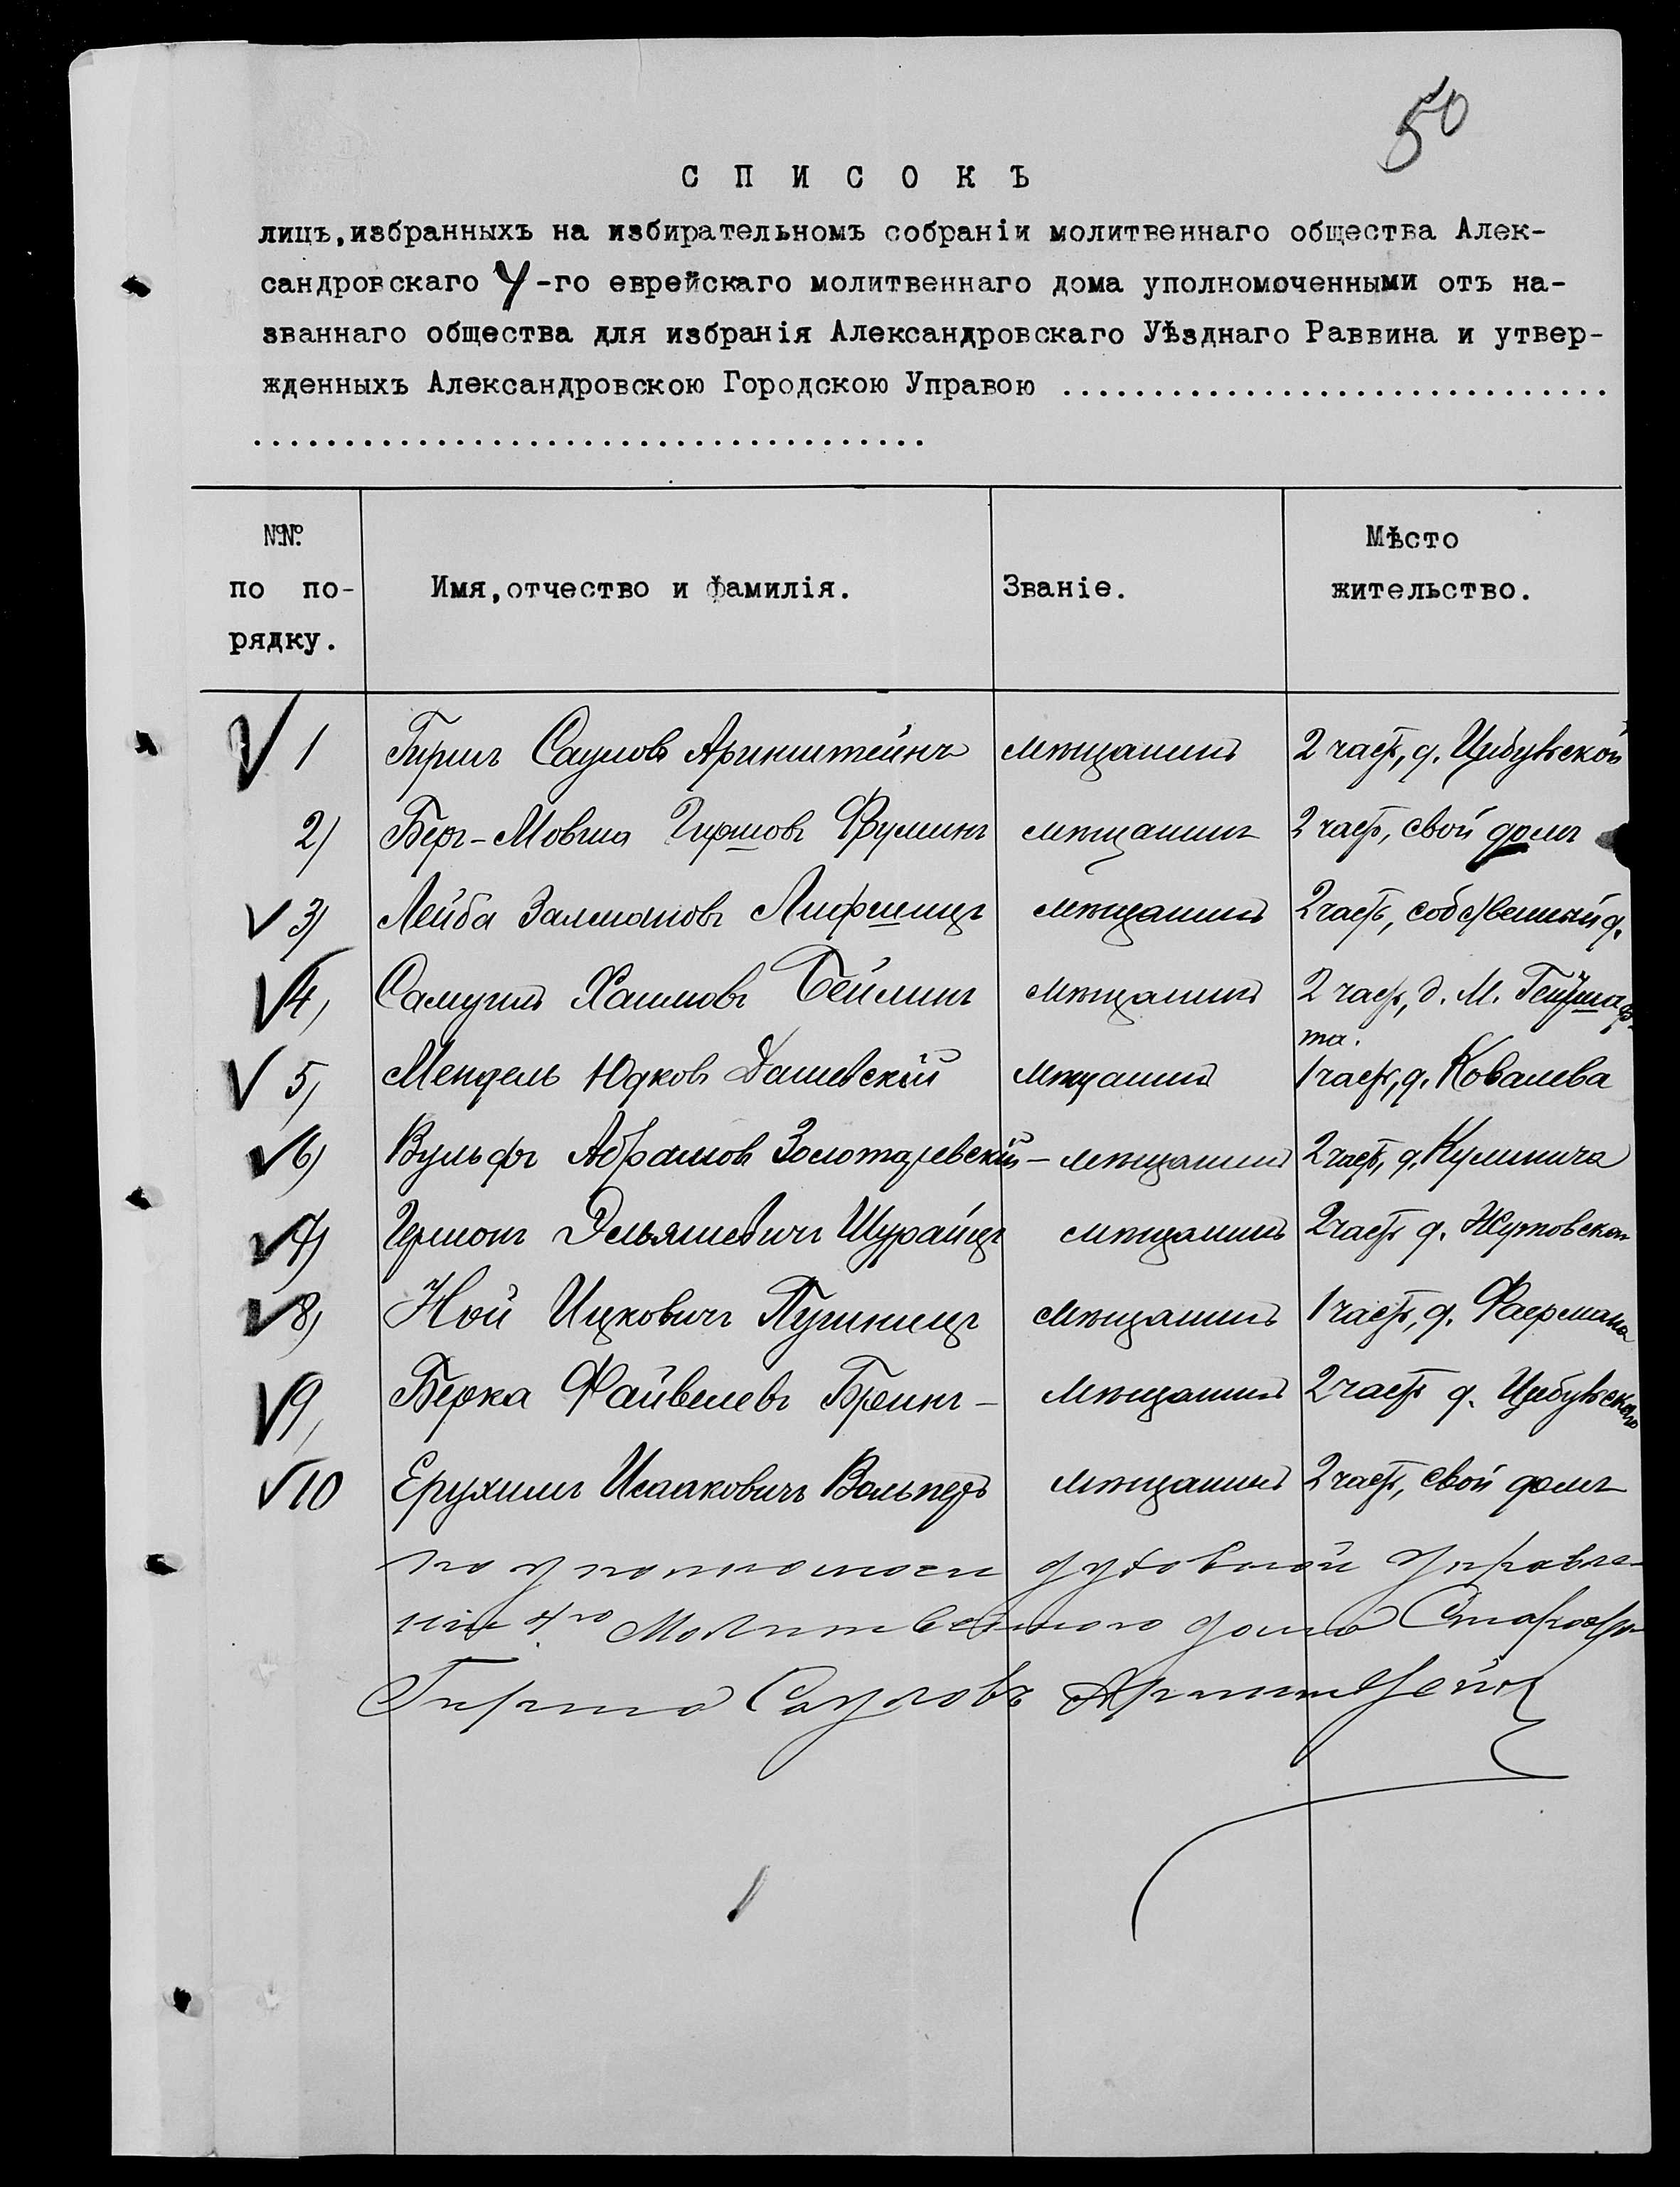 50
СПИСОКЪ
лицъ,избранныхъ на избирательномъ собраніи молитвеннаго общества Алек-
сандровскаго 4-го еврейскаго молитвеннаго дома уполномоченными отъ на-
званнаго общества для избранія Александровскаго Уѣзднаго Раввина и утвер-
жденныхъ Александровскою Городскою Управою ..............................
.....................................
№№
по по-
рядку.
Имя,отчество и фамилія.
Званіе.
Мѣсто
жительство.
1 Гиршъ Сауловъ Аринштейнъ мѣщанинъ 2 часть, д. Цибувской
2) Беръ-Мовша Гиршовъ Фруминъ мѣщанинъ 2 часть, свой домъ
3) Лейба Залмановъ Лифшицъ мѣщанинъ 2 часть, собственный д.
4) Самуилъ Хаимовъ Бейлинъ мѣщанинъ 2 часть, д. М.
та.
5) Мендель Юдковъ Дашевскій мѣщанинъ 1 часть, д. Ковалева
6) Вульфъ Абрамовъ Золотаревскій - мѣщанинъ 2 часть, д. Кулинича
7) Германъ Эльяшевичъ Шурайцъ мѣщанинъ 2 часть д. Жутовской
8) Ной Ицковичъ Пушницъ мѣщанинъ 1 часть, д. Фаермана
9) Берка Файвелевъ Бреинъ - мѣщанинъ 2 часть д. Цибувского
10 Ерухимъ Исааковичъ Вольпертъ мѣщанинъ 2 часть, свой домъ
духовной управле-
нии 4го Молитвенного дома Староста
Гирша Сауловъ Аринштейнъ